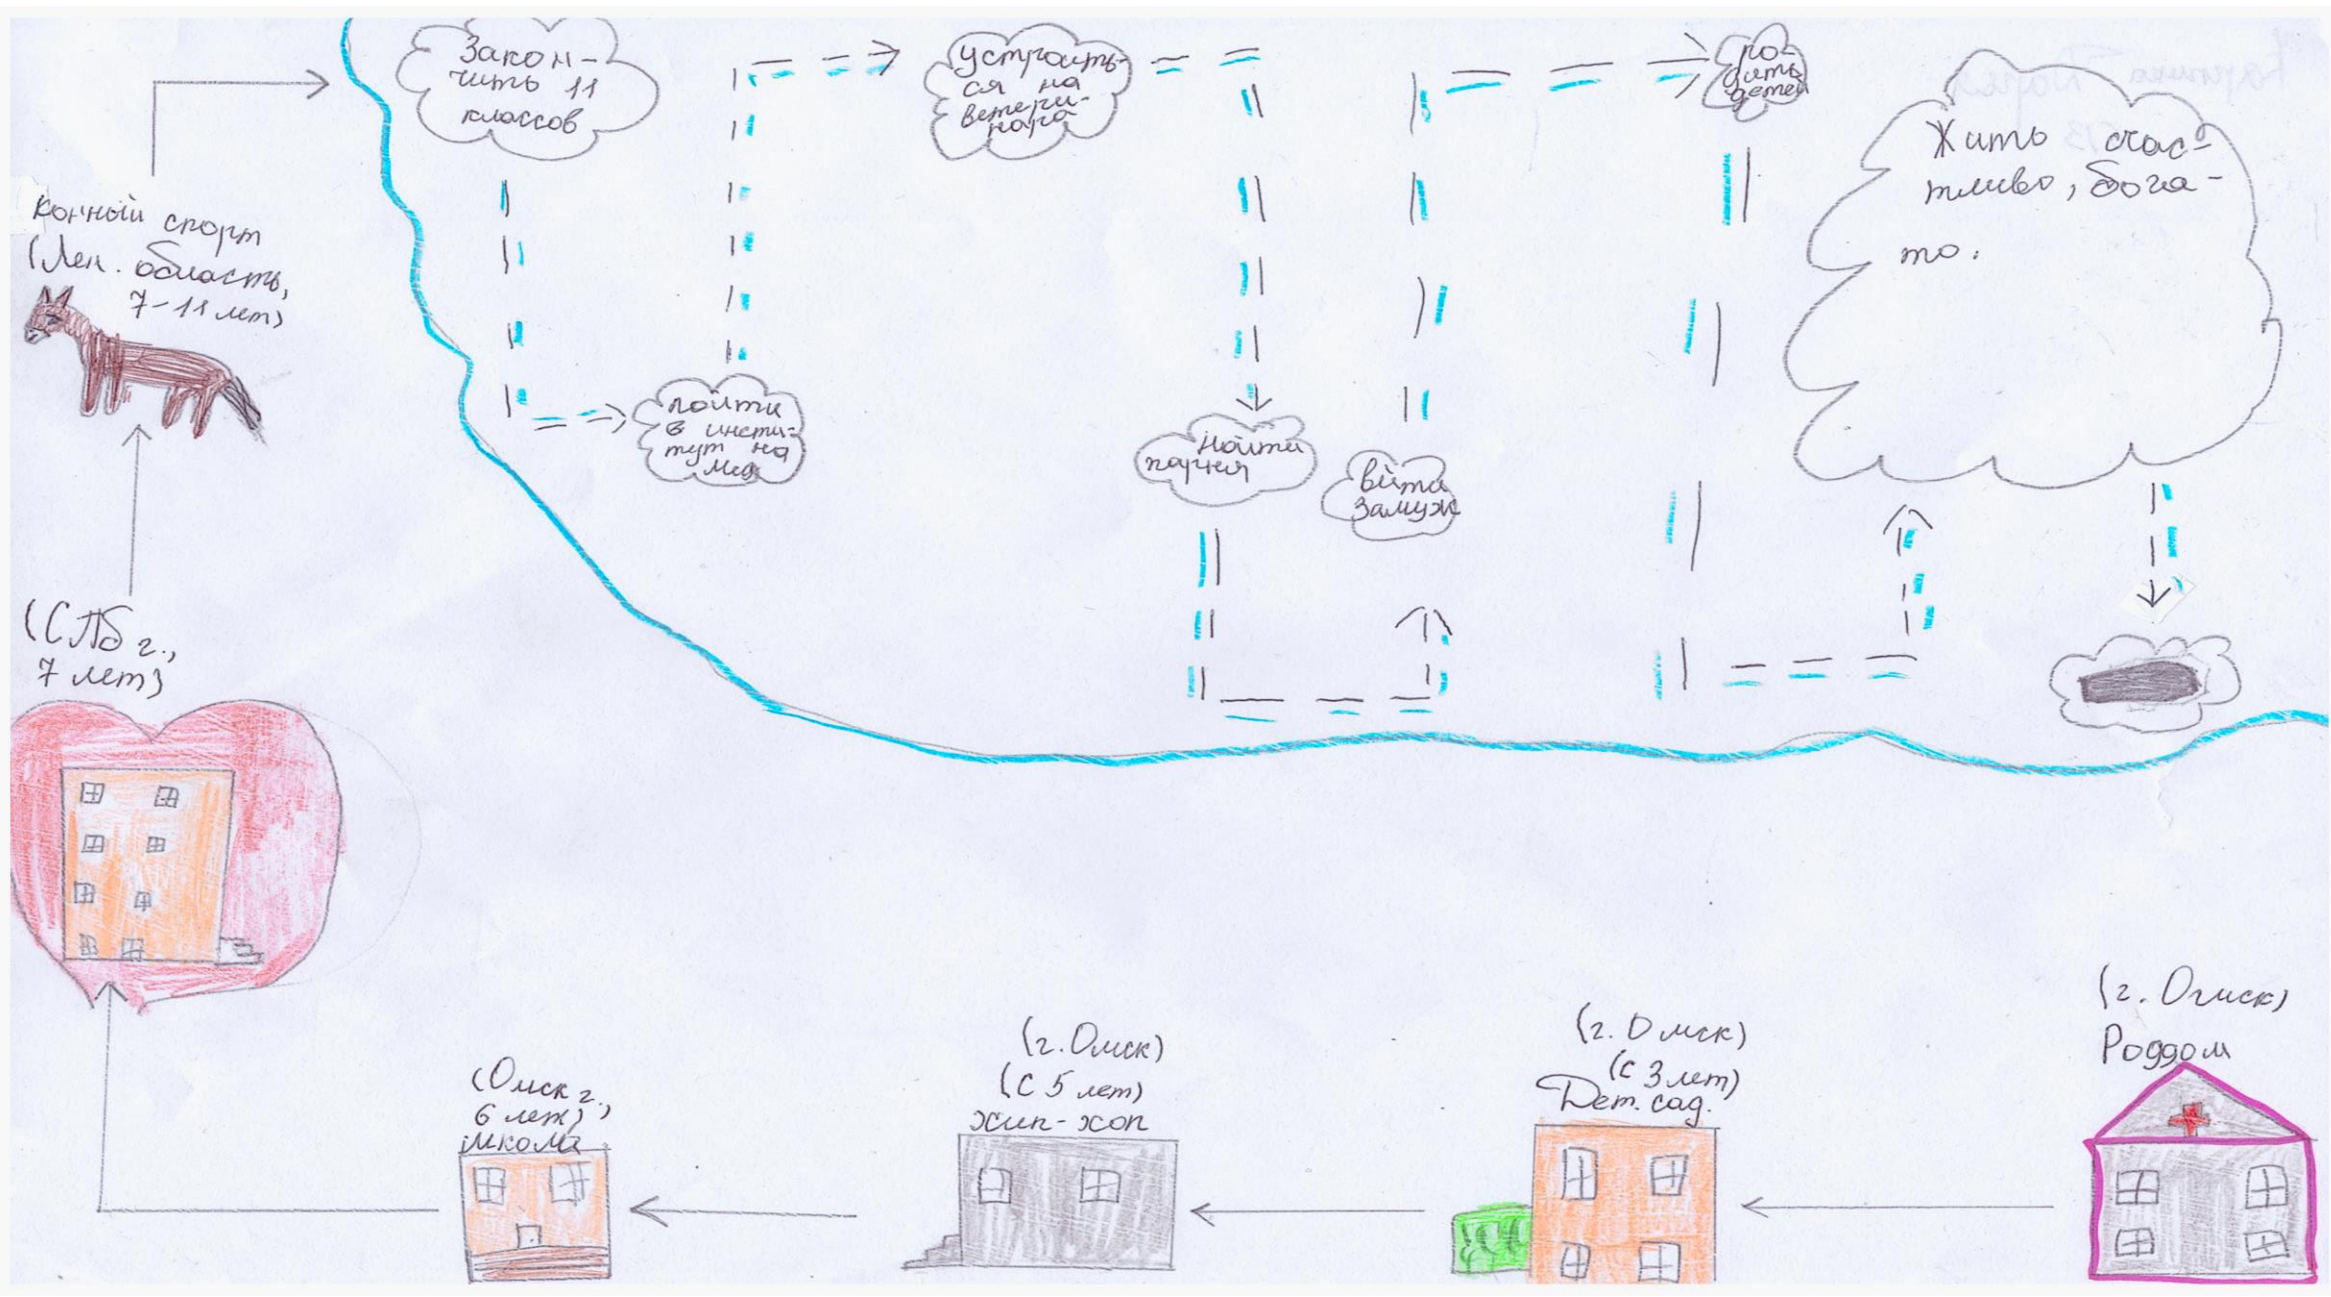 Закон-
чить 11
классов
устроить-
ся на
ветери-
нара
ро-
дить
детей
Жить счас-
тливо, бога-
то.
Конный спорт
(Лен. область,
7-11 лет)
пойти
в инсти-
тут на
мед
найти
парня
вйти
замуж
(СПб г.,
7 лет)
(Омск г.,
6 лет),
школа
(г. Омск)
(с 5 лет)
хип-хоп
(г. Омск)
(с 3 лет)
Дет. сад.
(г. Омск)
Роддом